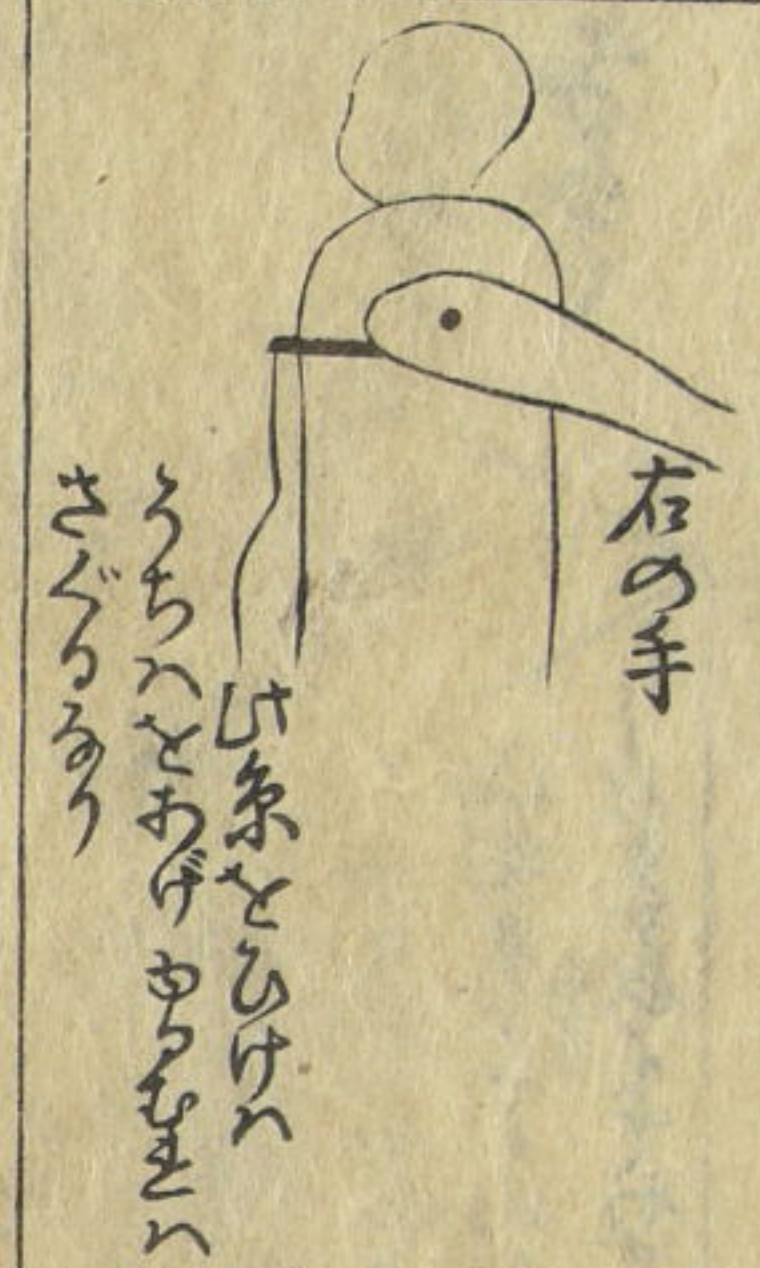 右の手
此糸をひけハ
うちハをあげゆるむれハ
さぐるなり